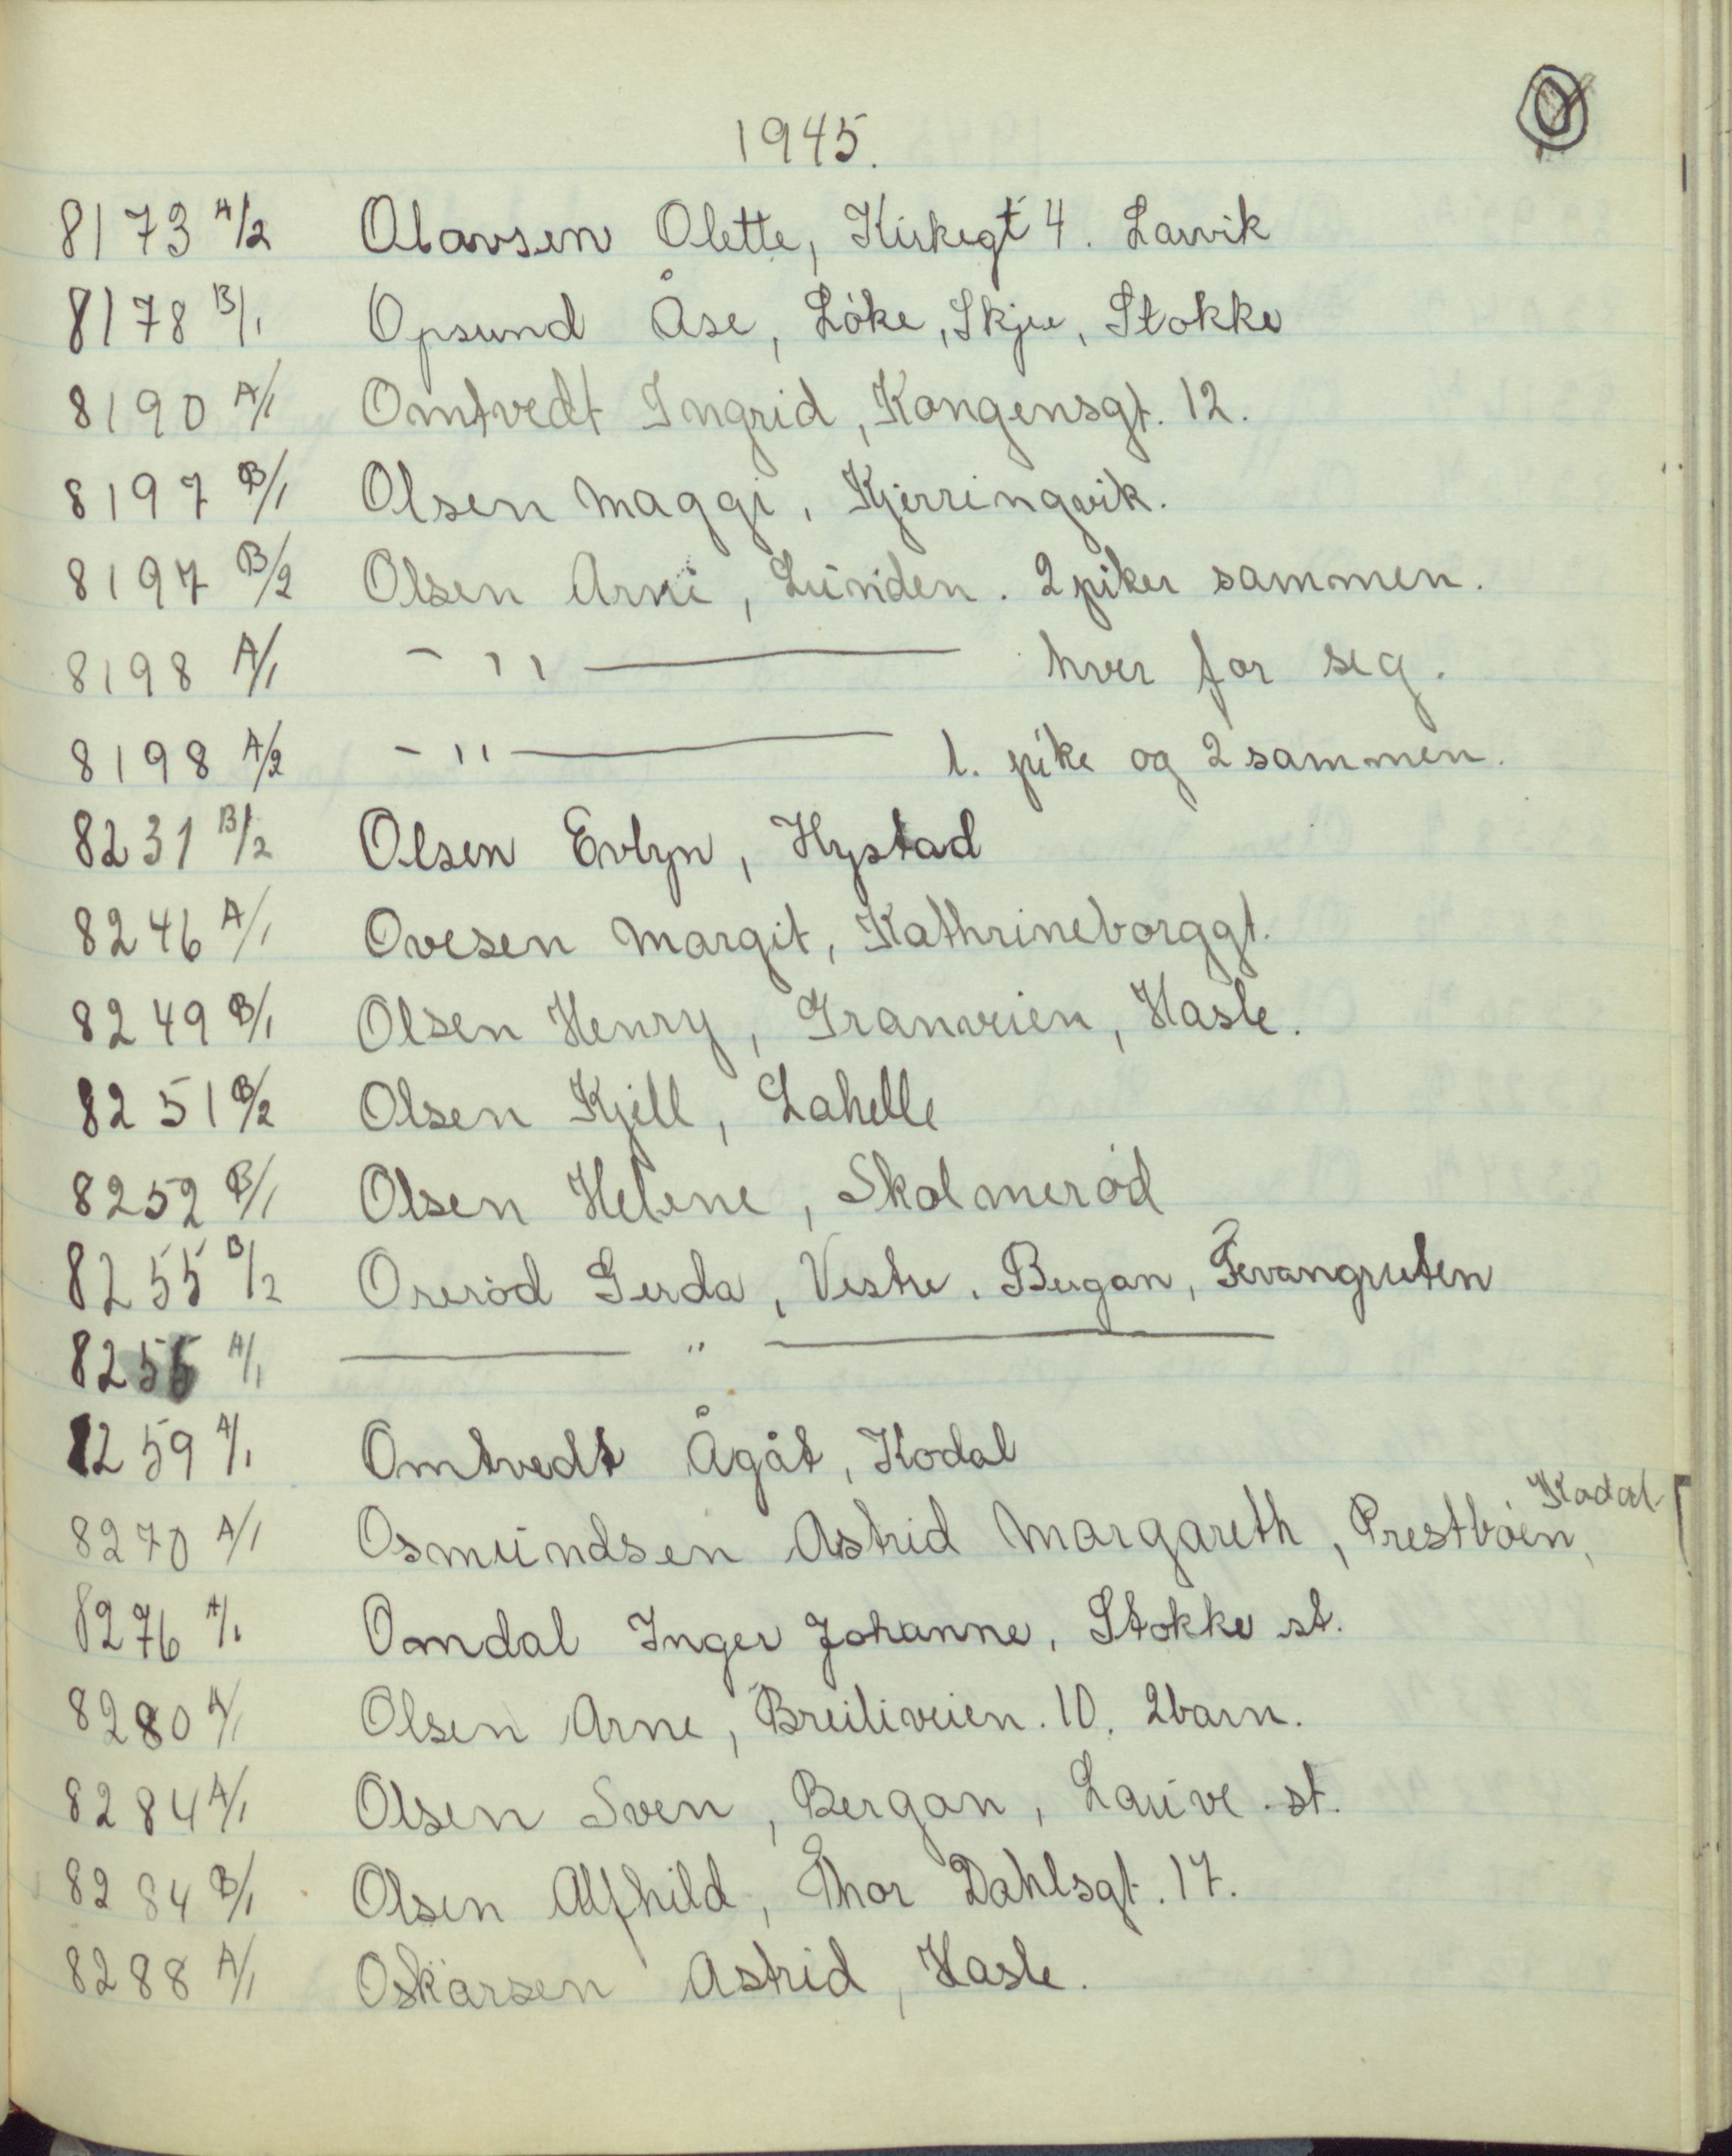 O
1945.
8173 A/2 Olavsen Olette, Kirkegt 4. Larvik
8178 B/1 Opsund Åse, Löke, Skjee, Stokke
8190 A/1 Omtvedt Ingrid, Kongensgt. 12.
8197 B/1 Olsen Maggi, Kjerringvik.
8197 B/2 Olsen Arne, Lunden. 2 piker sammen.
8198 A/1 - " — hver for seg.
8198 A/2 - " — 1. pike og 2 sammen.
8231 B/2 Olsen Evlyn, Hystad
8246 A/1 Ovesen Margit, Kathrineborggt.
8249 B/1 Olsen Henry, Granveien, Hasle.
8251 B/2 Olsen Kjell, Lahelle
8252 B/1 Olsen Helene, Skolmeröd
8255 B/2 Oreröd Gerda, Vestre. Bergan, Fevangruten
8255 A/1 — " —
8259 A/1 Omtvedt Ågåt, Kodal
8270 A/1 Osmundsen Astrid Margareth, Prestböen, Kodal
8276 A/1 Omdal Inger Johanne, Stokke st.
8280 A/1 Olsen Arne, Breiliveien. 10. 2 barn.
8284 A/1 Olsen Sven, Bergan, Lauve st.
8284 B/1 Olsen Alfhild, Thor Dahlsgt. 17.
8288 A/1 Oskarsen Astrid, Hasle.